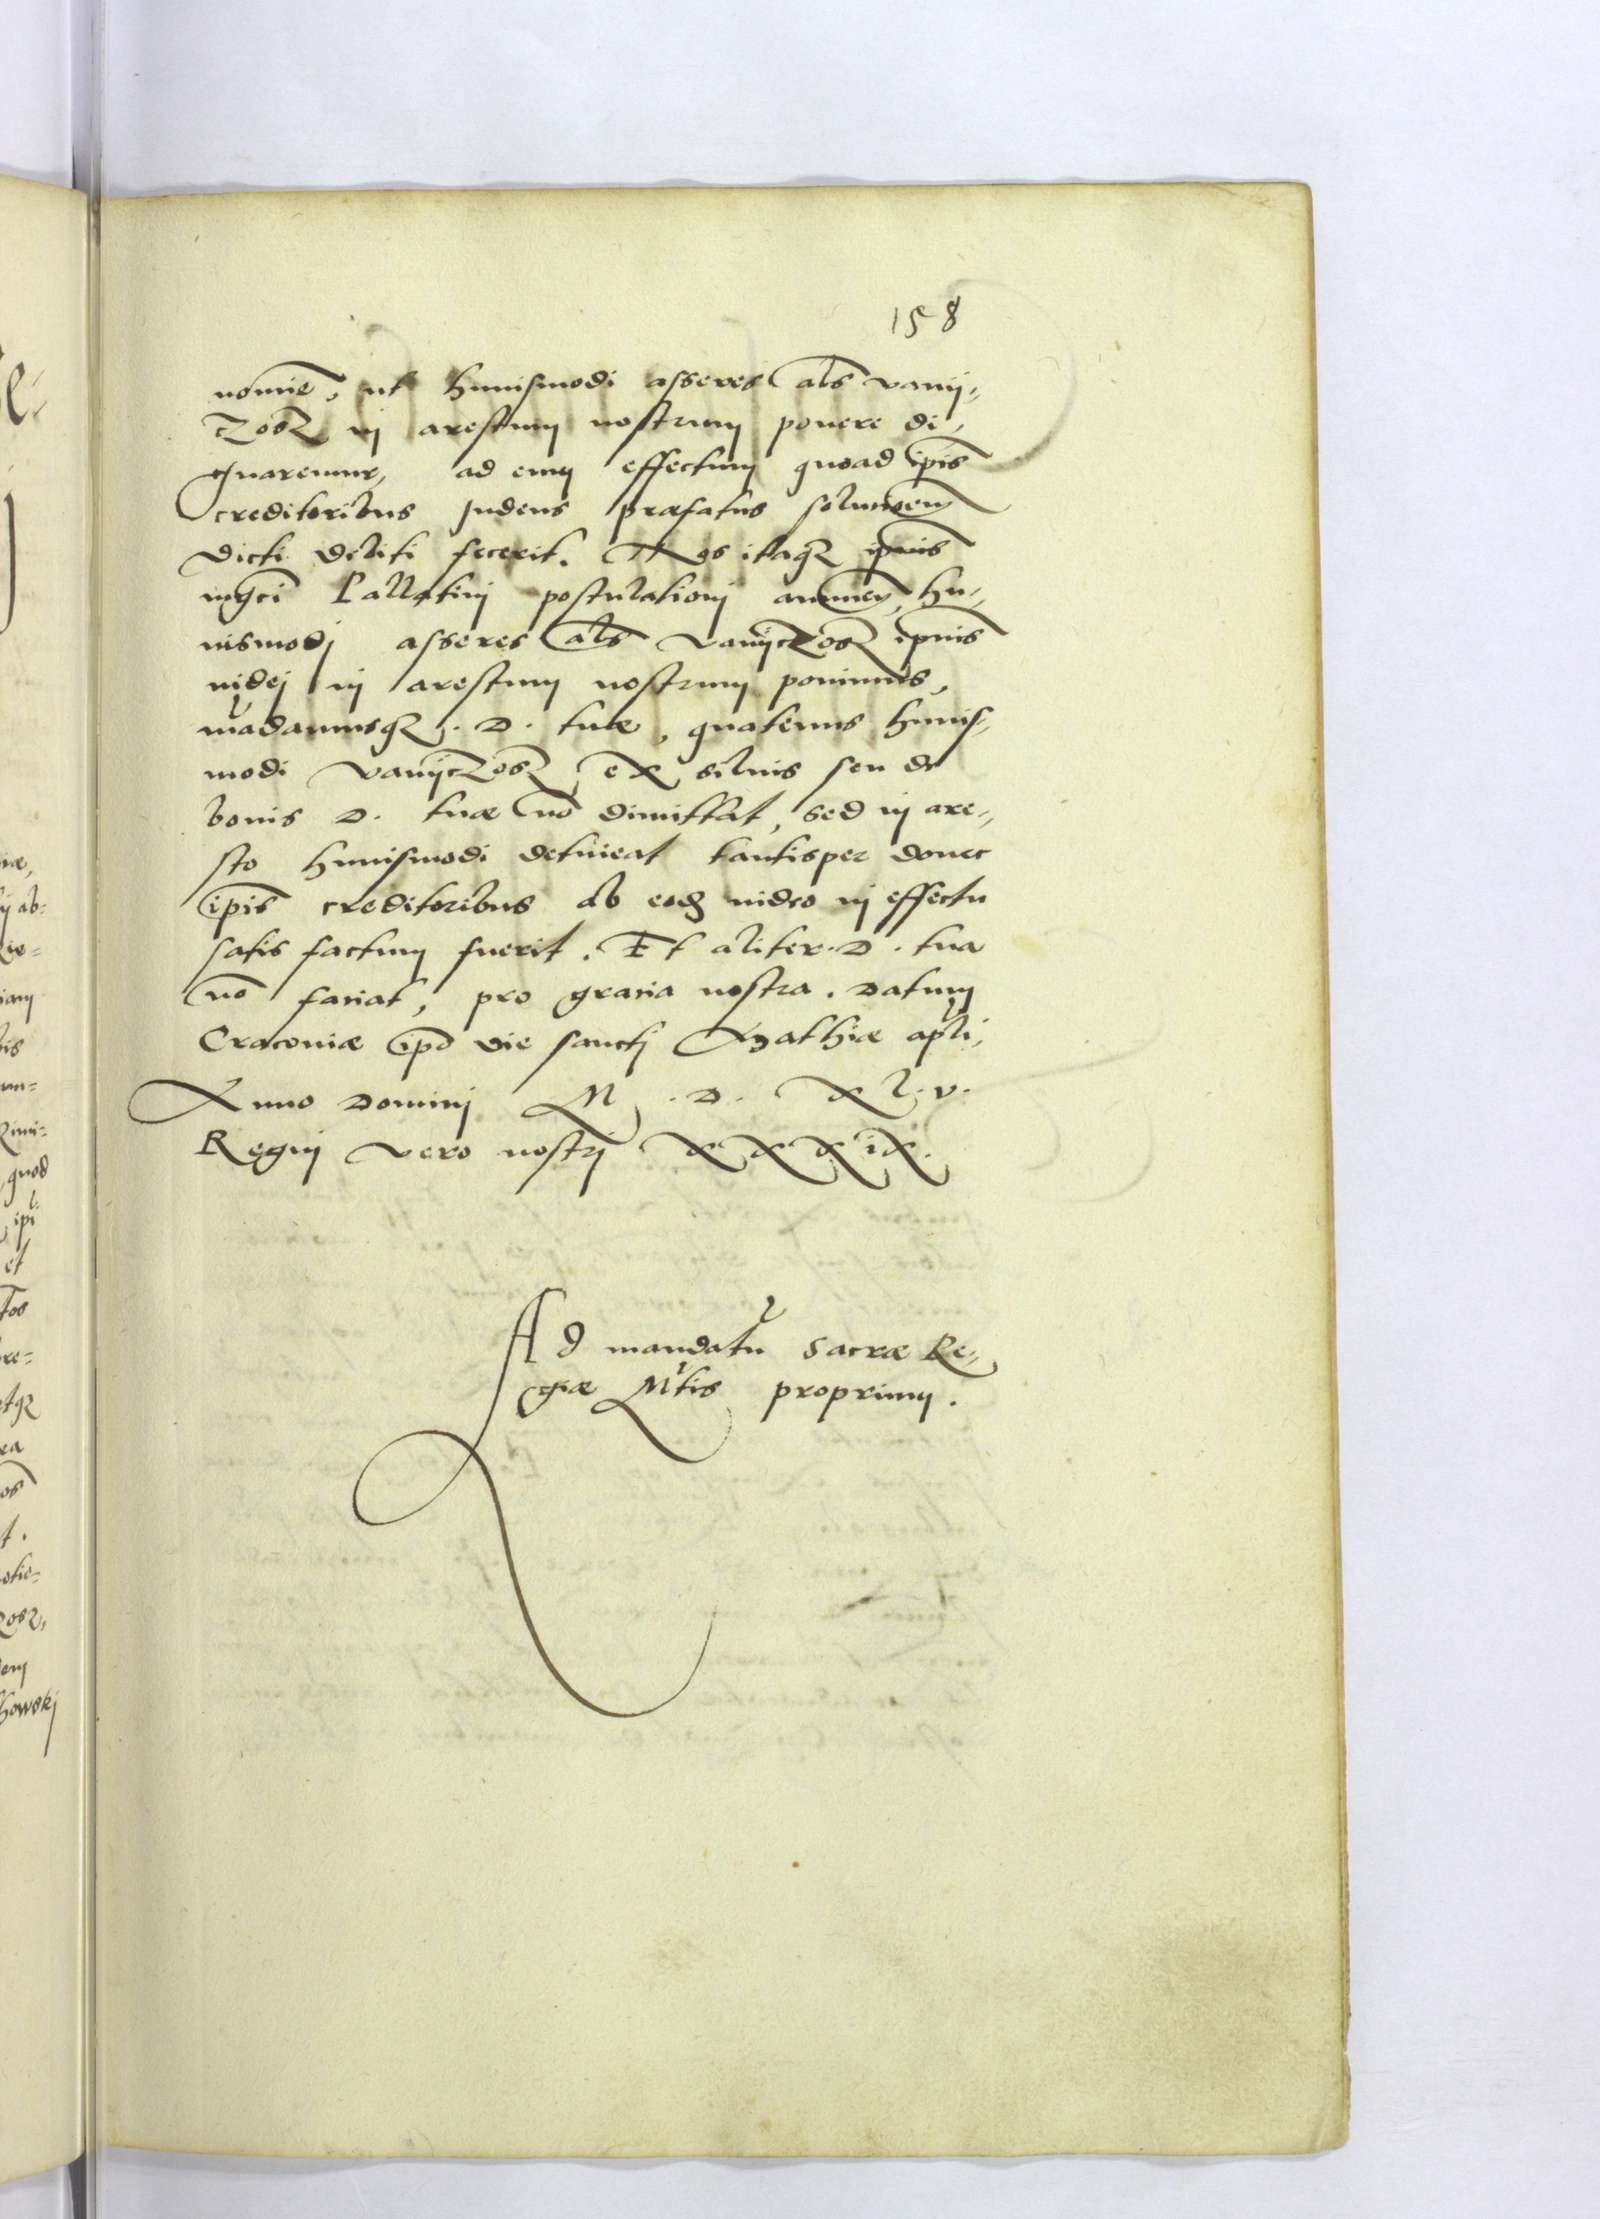 158
nomīe, ut huiusmodi asseres als vanij=
czosz in arestum nostrum ponere di,
gnaremur, ad eum effectum quoad ipīs
creditoribus Judeus præfatus solutioem
dicti debiti fecerit. Nos itaqz ipius
mgci Pallatini postulationi annueñ, hu=
iusmodi asseres als vanijczosz ipius
iudei in arestum nostrum ponimus,
mādamusqz . D . tuæ, quatenus huius=
modi vanijczosz ex siluis seu de
bonis D. tuæ nō dimittat, sed in are=
sto huiusmodi detineat tantisper donec
ipīs creditoribus ab eodē iudeo in effectu
satis factum fuerit . Et aliter . D . tua
nō faciat, pro gracia nostra . Datum
Cracouiæ ipō die sancti Mathiæ apli,
Anno Domini M . D . X L . v .
Regni vero nostri X X X i X .
Ad mandatū Sacræ Re=
giæ Mtis proprium .
iæ,
ab=
ie=
iam
bis
quod
ipi
et
tos
re=
tqz
ea
os
t .
osz,
em
howski